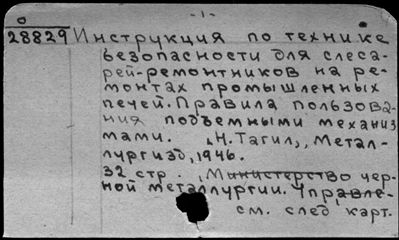 - 1 -
28829 Инструкция по технике
безопасности для слеса-
рей-ремонтников на ре-
монтах промышленных
печей. Правила пользова-
ния подъемными механиз
мами. „Н. Тагил„, Метал-
лургизд, 1946.
32 стр. , Министерство чер-
ной металлургии. Управле-
см. след карт.